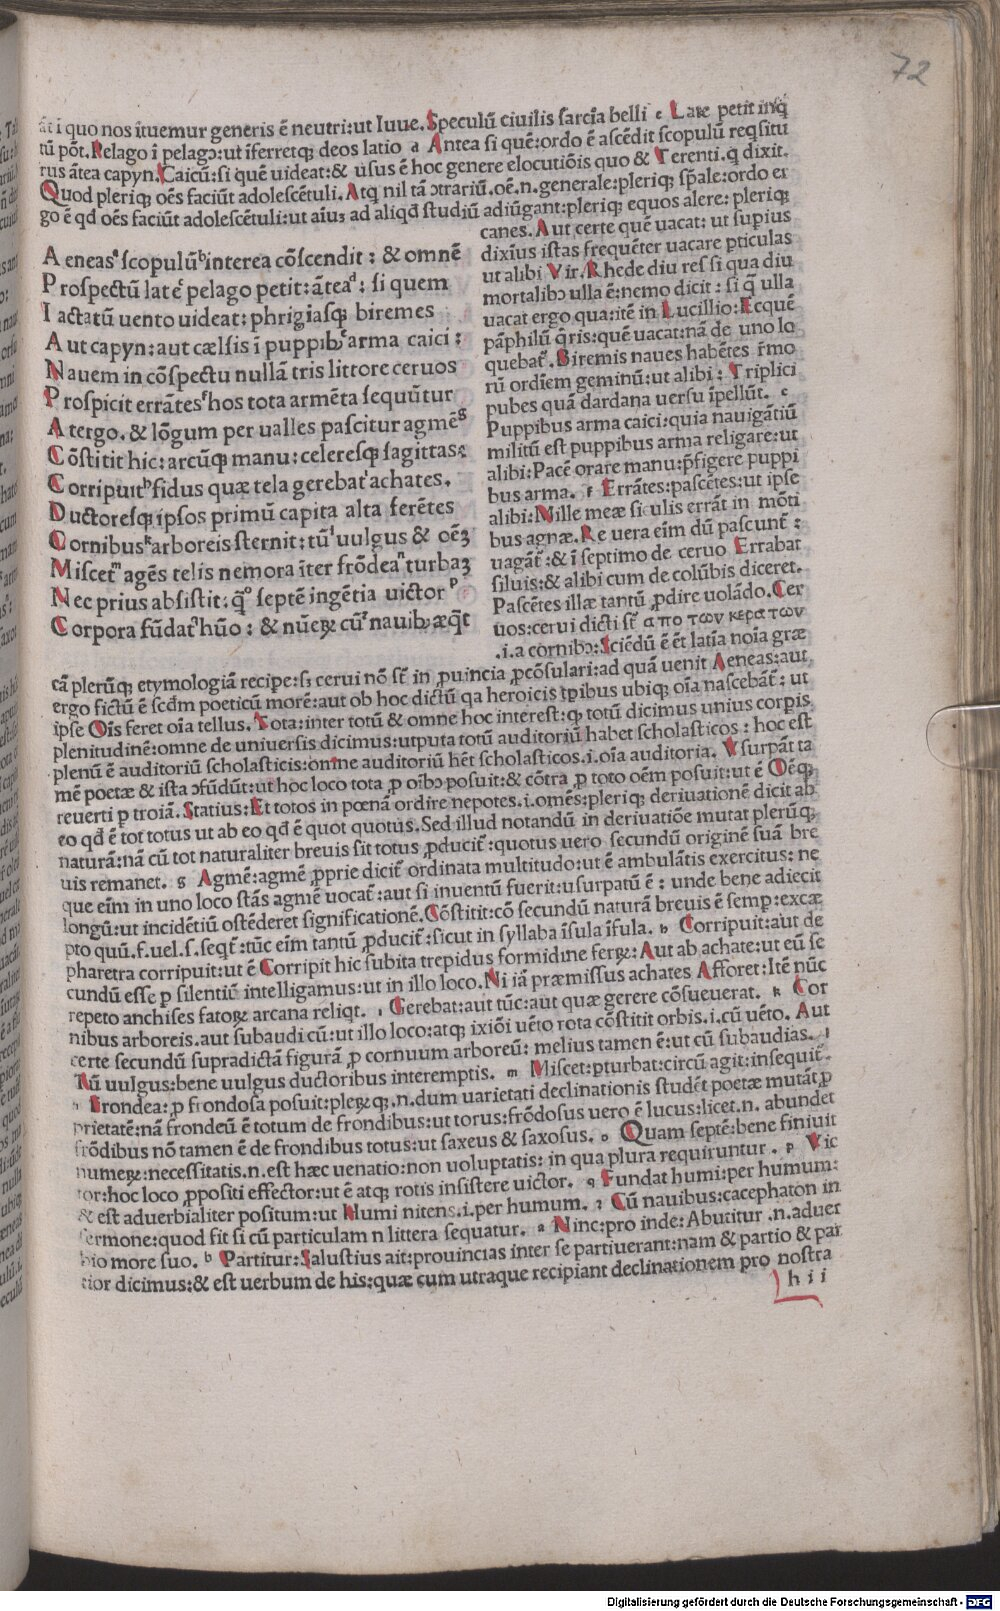 72
ãt ĩ quo nos ĩtuemur generis ẽ neutri:ut Iuue.Speculũ ciuilis ſarcĩa belli c Late petit inq̃
tũ põt.Pelago ĩ pelagꝰ:ut ĩferretqꝫ deos latio d Antea ſi quẽ:ordo ẽ aſcẽdit ſcopulũ reqſitu
rus ãtea capyn.Caicũ:ſi quẽ uideat:& uſus ẽ hoc genere elocutiõis quo & Terenti.q̃ dixit.
Quod pleriqꝫ oẽs faciũt adoleſcẽtuli.Atqꝫ nil tã ↄtrariũ.oẽ.n.generale:pleriqꝫ ſp̃ale:ordo er
go ẽ qđ oẽs faciũt adoleſcẽtuli:ut aiuꝫ ad aliqđ ſtudiũ adiũgant:pleriqꝫ equos alere: pleriqꝫ
Aeneas ſcopulũ interea cõſcendit: & omnẽ
Proſpectũ late pelago petit: ãtea: ſi quem
Iactatũ uento uideat: phrigiaſqꝫ biremes
Aut capyn:aut cælſis ĩ puppibꝰ arma caici:
Nauem in cõſpectu nullã tris littore ceruos
Proſpicit errãtes hos tota armẽta ſequũtur
A tergo.& lõgum per ualles paſcitur agmẽ
Cõſtitit hic: arcũqꝫ manu: celereſqꝫ ſagittas:
Corripuit fidus quæ tela gerebat achates.
Ductoreſqꝫ ipſos primũ capita alta ferẽtes
Cornibus arboreis ſternit: tũ uulgus & oẽꝫ
Miſcet agẽs telis nemora ĩter frõdea turbaꝫ
Nec prius abſiſtit: q̃ ſeptẽ ingẽtia uictor
Corpora fũdat hũo: & nũeꝝ cũ nauibꝰ æq̃t
canes.Aut certe quẽ uacat: ut ſupius
dixĩus iſtas frequẽter uacare pticulas
ut alibi Vir.Rhede diu reſ ſi qua diu
mortalibꝰ ulla ẽ:nemo dicit: ſi q̃ ulla
uacat ergo qua:itẽ in Lucillio:Ecquẽ
pãphilũ q̃ris:quẽ uacat:nã de uno lo
quebat̃.Biremis naues habẽtes r̃mo
rũ ordĩem geminũ:ut alibi: Triplici
pubes quã dardana uerſu ĩpellũt. e
Puppibus arma caici:quia nauigãtiũ
militũ eſt puppibus arma religare:ut
alibi:Pacẽ orare manu:p̃figere puppi
bus arma. f Errãtes:paſcẽtes:ut ipſe
alibi:Mille meæ ſiculis errãt in mõti
bus agnæ.Re uera eĩm dũ paſcunt̃:
uagãt̃:& ĩ ſeptimo de ceruo Errabat
ſiluis:& alibi cum de colũbis diceret.
Paſcẽtes illæ tantũ ꝓdire uolãdo.Cer
uos:cerui dicti ſt̃ απο των κερατων
.i.a cornibꝰ:Sciẽdũ ẽ ẽt latĩa noĩa græ
cã plerũqꝫ etymologiã recipe:ſi cerui nõ ſt̃ in ꝓuincia ꝓcõſulari:ad quã uenit Aeneas:aut
ergo fictũ ẽ ſcđm poeticũ morẽ:aut ob hoc dictũ qa heroicis tꝑibus ubiqꝫ oĩa naſcebãt̃: ut
ipſe Oĩs feret oĩa tellus.Tota:inter totũ & omne hoc intereſt:qꝫ totũ dicimus unius corꝑis
plenitudinẽ:omne de uniuerſis dicimus:utputa totũ auditoriũ habet ſcholaſticos: hoc eſt
plenũ ẽ auditoriũ ſcholaſticis:omne auditoriũ hẽt ſcholaſticos.i.oĩa auditoria. Vſurpãt ta
mẽ poetæ & iſta ↄfũdũt:ut hoc loco tota ꝓ oĩbꝰ poſuit:& cõtra ꝓ toto oẽm poſuit:ut ẽ Oẽqꝫ
reuerti ꝑ troiã.Statius:Et totos in pœnã ordire nepotes.i.omẽs:pleriqꝫ deriuationẽ dicit ab
eo qđ ẽ tot totus ut ab eo qđ ẽ quot quotus.Sed illud notandũ in deriuatiõe mutat plerũqꝫ
naturã:nã cũ tot naturaliter breuis ſit totus ꝓducit̃:quotus uero ſecundũ originẽ ſuã bre
uis remanet. g Agmẽ:agmẽ ꝓprie dicit̃ ordinata multitudo:ut ẽ ambulãtis exercitus: ne
que eĩm in uno loco ſtãs agmẽ uocat̃:aut ſi inuentũ fuerit:uſurpatũ ẽ: unde bene adiecit
longũ:ut incidẽtiũ oſtẽderet ſignificationẽ.Cõſtitit:cõ ſecundũ naturã breuis ẽ ſemp:excæ
pto quũ.f.uel.ſ.ſeqt̃:tũc eĩm tantũ ꝓducit̃:ſicut in ſyllaba ĩſula ĩſula. h Corripuit:aut de
pharetra corripuit:ut ẽ Corripit hic ſubita trepidus formidine ferꝝ:Aut ab achate:ut eũ ſe
cundũ eſſe ꝑ ſilentiũ intelligamus:ut in illo loco.Ni iã præmiſſus achates Afforet:Itẽ nũc
repeto anchiſes fatoꝝ arcana reliqt. i Gerebat:aut tũc:aut quæ gerere cõſueuerat. k Cor
nibus arboreis.aut ſubaudi cũ:ut illo loco:atqꝫ ixiõi uẽto rota cõſtitit orbis.i.cũ uẽto. Aut
certe secundũ ſupradictã figurã ꝓ cornuum arboreũ: melius tamen ẽ:ut cũ ſubaudias. l
Tũ uulgus:bene uulgus ductoribus interemptis. m Miſcet:ꝑturbat:circũ agit:inſequit̃.
n Frondea:ꝓ frondoſa poſuit:pleꝝqꝫ.n.dum uarietati declinationis ſtudẽt poetæ mutãt ꝓ
prietatẽ:nã frondeũ ẽ totum de frondibus:ut torus:frõdoſus uero ẽ lucus:licet.n. abundet
frõdibus nõ tamen ẽ de frondibus totus:ut ſaxeus & ſaxoſus. o Quam ſeptẽ:bene finiuit
numeꝝ:neceſſitatis.n.eſt hæc uenatio:non uoluptatis: in qua plura requiruntur. p Vic
tor:hoc loco ꝓpoſiti effector:ut ẽ atqꝫ rotis inſiſtere uictor. q Fundat humi:per humum:
& eſt aduerbialiter poſitum:ut Humi nitens.i.per humum. Cũ nauibus:cacephaton in
ſermone:quod fit ſi cũ particulam n littera ſequatur. a Hinc:pro inde: Abutitur .n.aduer
bio more ſuo. b Partitur:Saluſtius ait:prouincias inter ſe partiuerant:nam & partio & par
tior dicimus:& eſt uerbum de his:quæ cum utraque recipiant declinationem pro noſtra
h ii
Digitalisierung gefördert durch die Deutsche Forschungsgemeinschaft - DFG